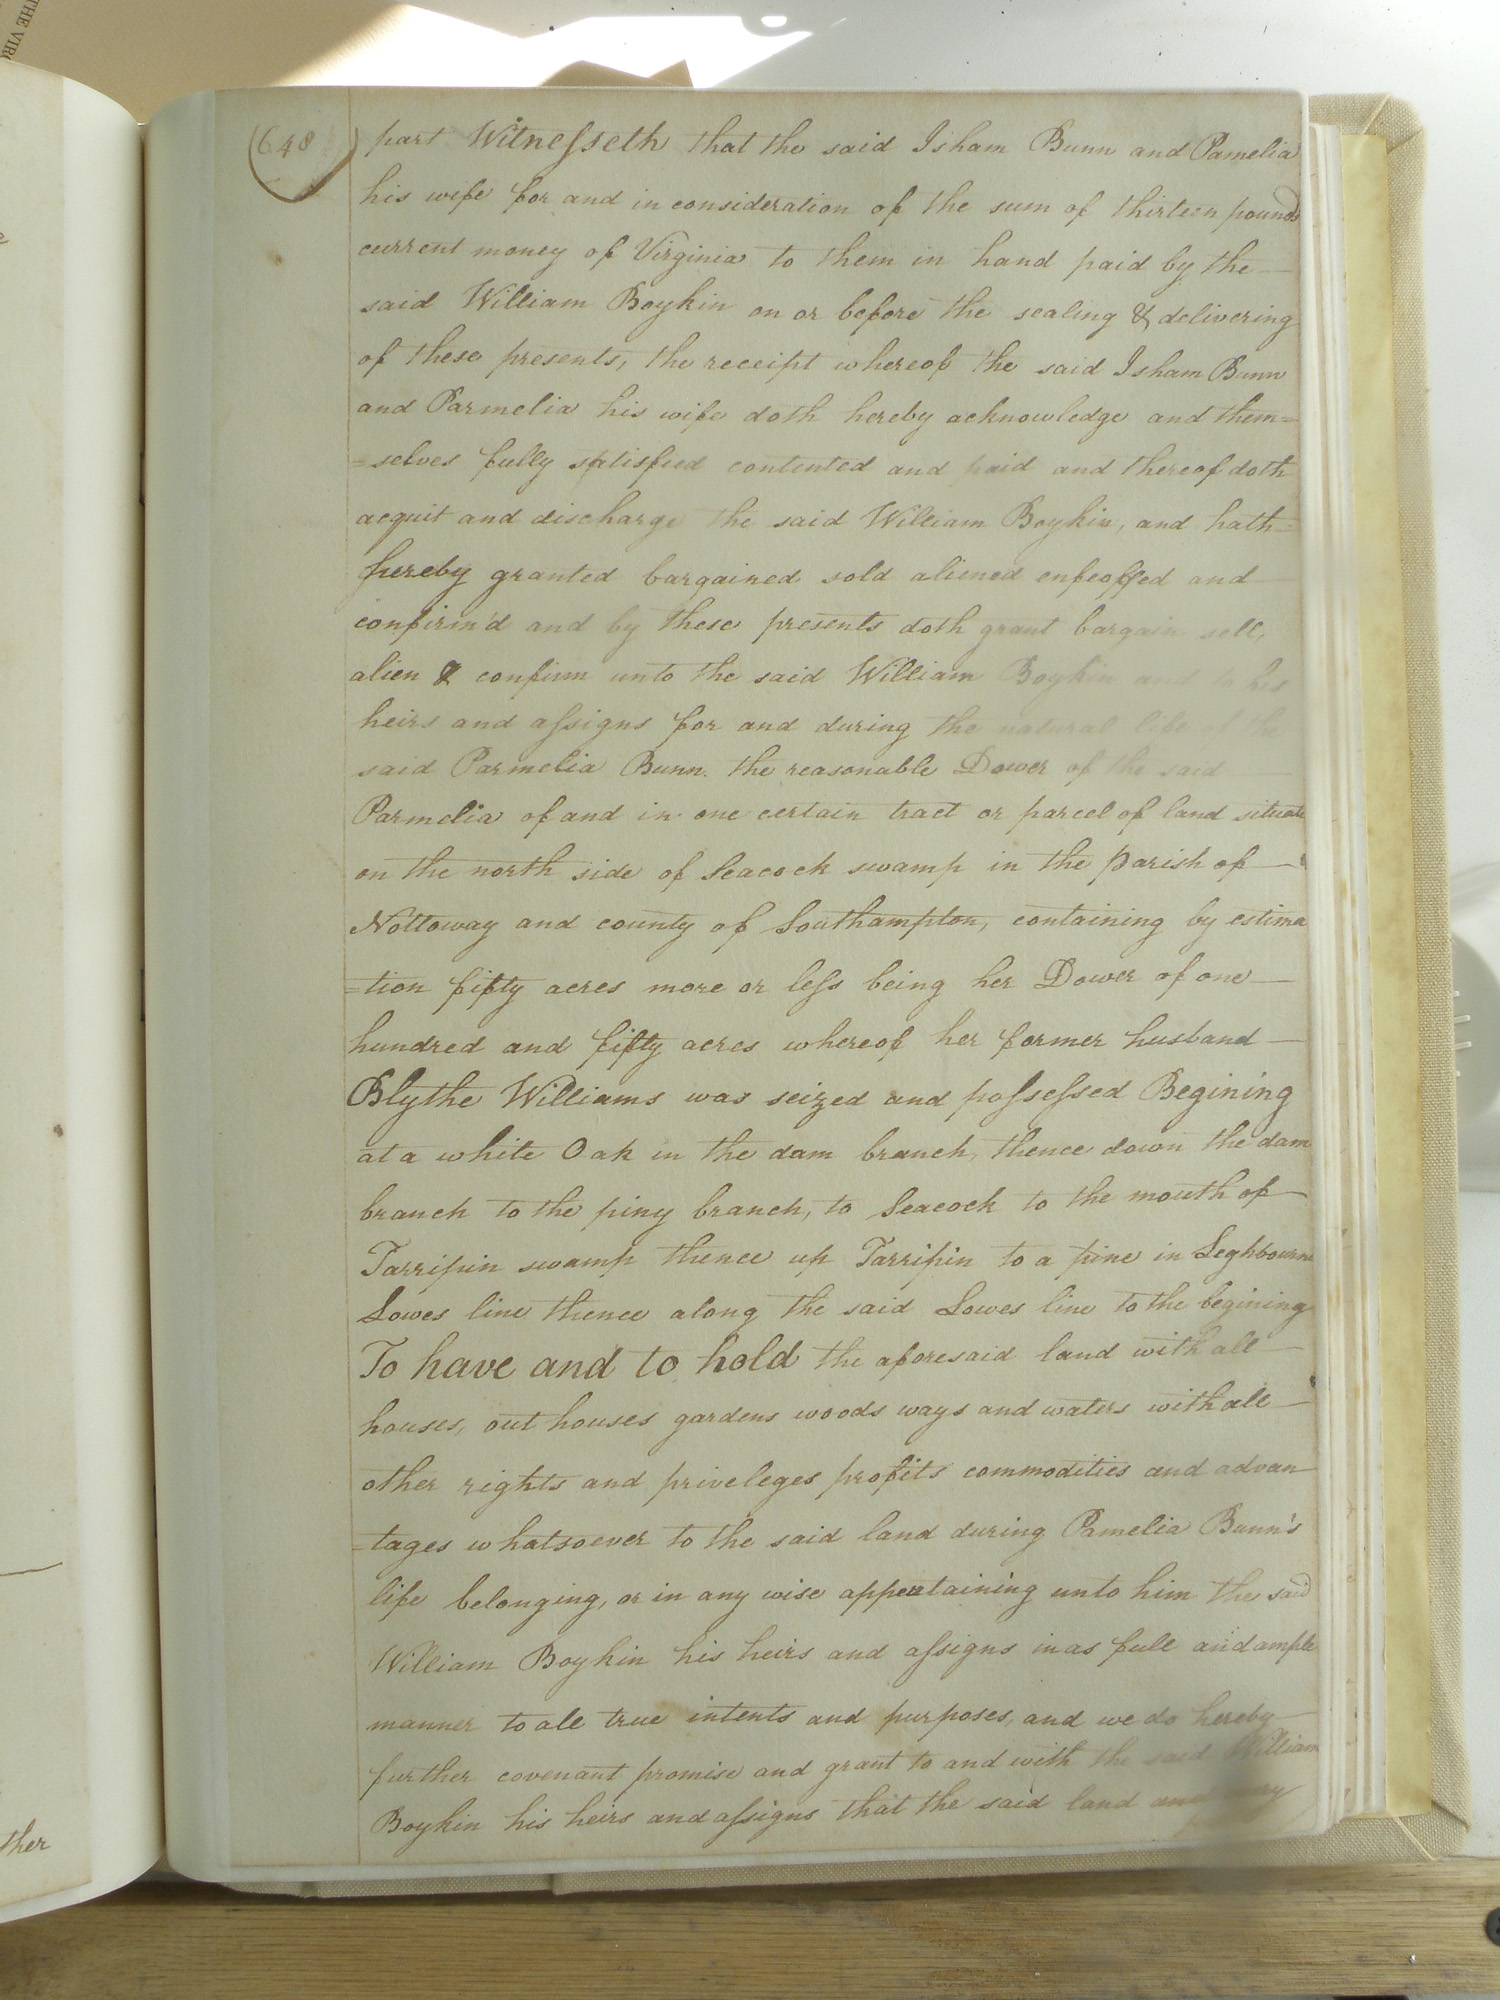 THE VIR
(648)
part Witnesseth that the said Isham Bunn and Pamelia
his wife for and in consideration of the sum of thirteen pounds
current money of Virginia to them in hand paid by the
said William Boykin on or before the sealing & delivering
of these presents, the receipt whereof the said Isham Bunn
and Parmelia his wife doth hereby acknowledge and them=
=selves fully satisfied contented and paid and thereof doth
acquit and discharge the said William Boykin, and hath=
hereby granted bargained sold aliened enfeoffed and
confirm'd and by these presents doth grant bargain sell,
alien & confirm unto the said William Boykin and to his
heirs and assigns for and during the natural life of the
said Parmelia Bunn. the reasonable Dower of the said
Parmelia of and in one certain tract or parcel of land situate
on the north side of Seacock swamp in the Parish of
Nottoway and county of Southampton, containing by estima
=tion fifty acres more or less being her Dower of one
hundred and fifty acres whereof her former husband
Blythe Williams was seized and possessed Begining
at a white Oak in the dam branch, thence down the dam
branch to the piny branch, to Seacock to the mouth of
Tarripin swamp thence up Tarripin to a pine in Leghbourne
Lowes line thence along the said Lowes line to the begining
To have and to hold the aforesaid land with all
houses, out houses gardens woods ways and waters with all
other rights and priveleges profits commodities and advan
=tages whatsoever to the said land during Pamelia Bunn's
life belonging, or in any wise appertaining unto him the said
William Boykin his heirs and assigns in as full and ample
manner to all true intents and purposes, and we do hereby
further covenant promise and grant to and with the said William
Boykin his heirs and assigns that the said land and
ther